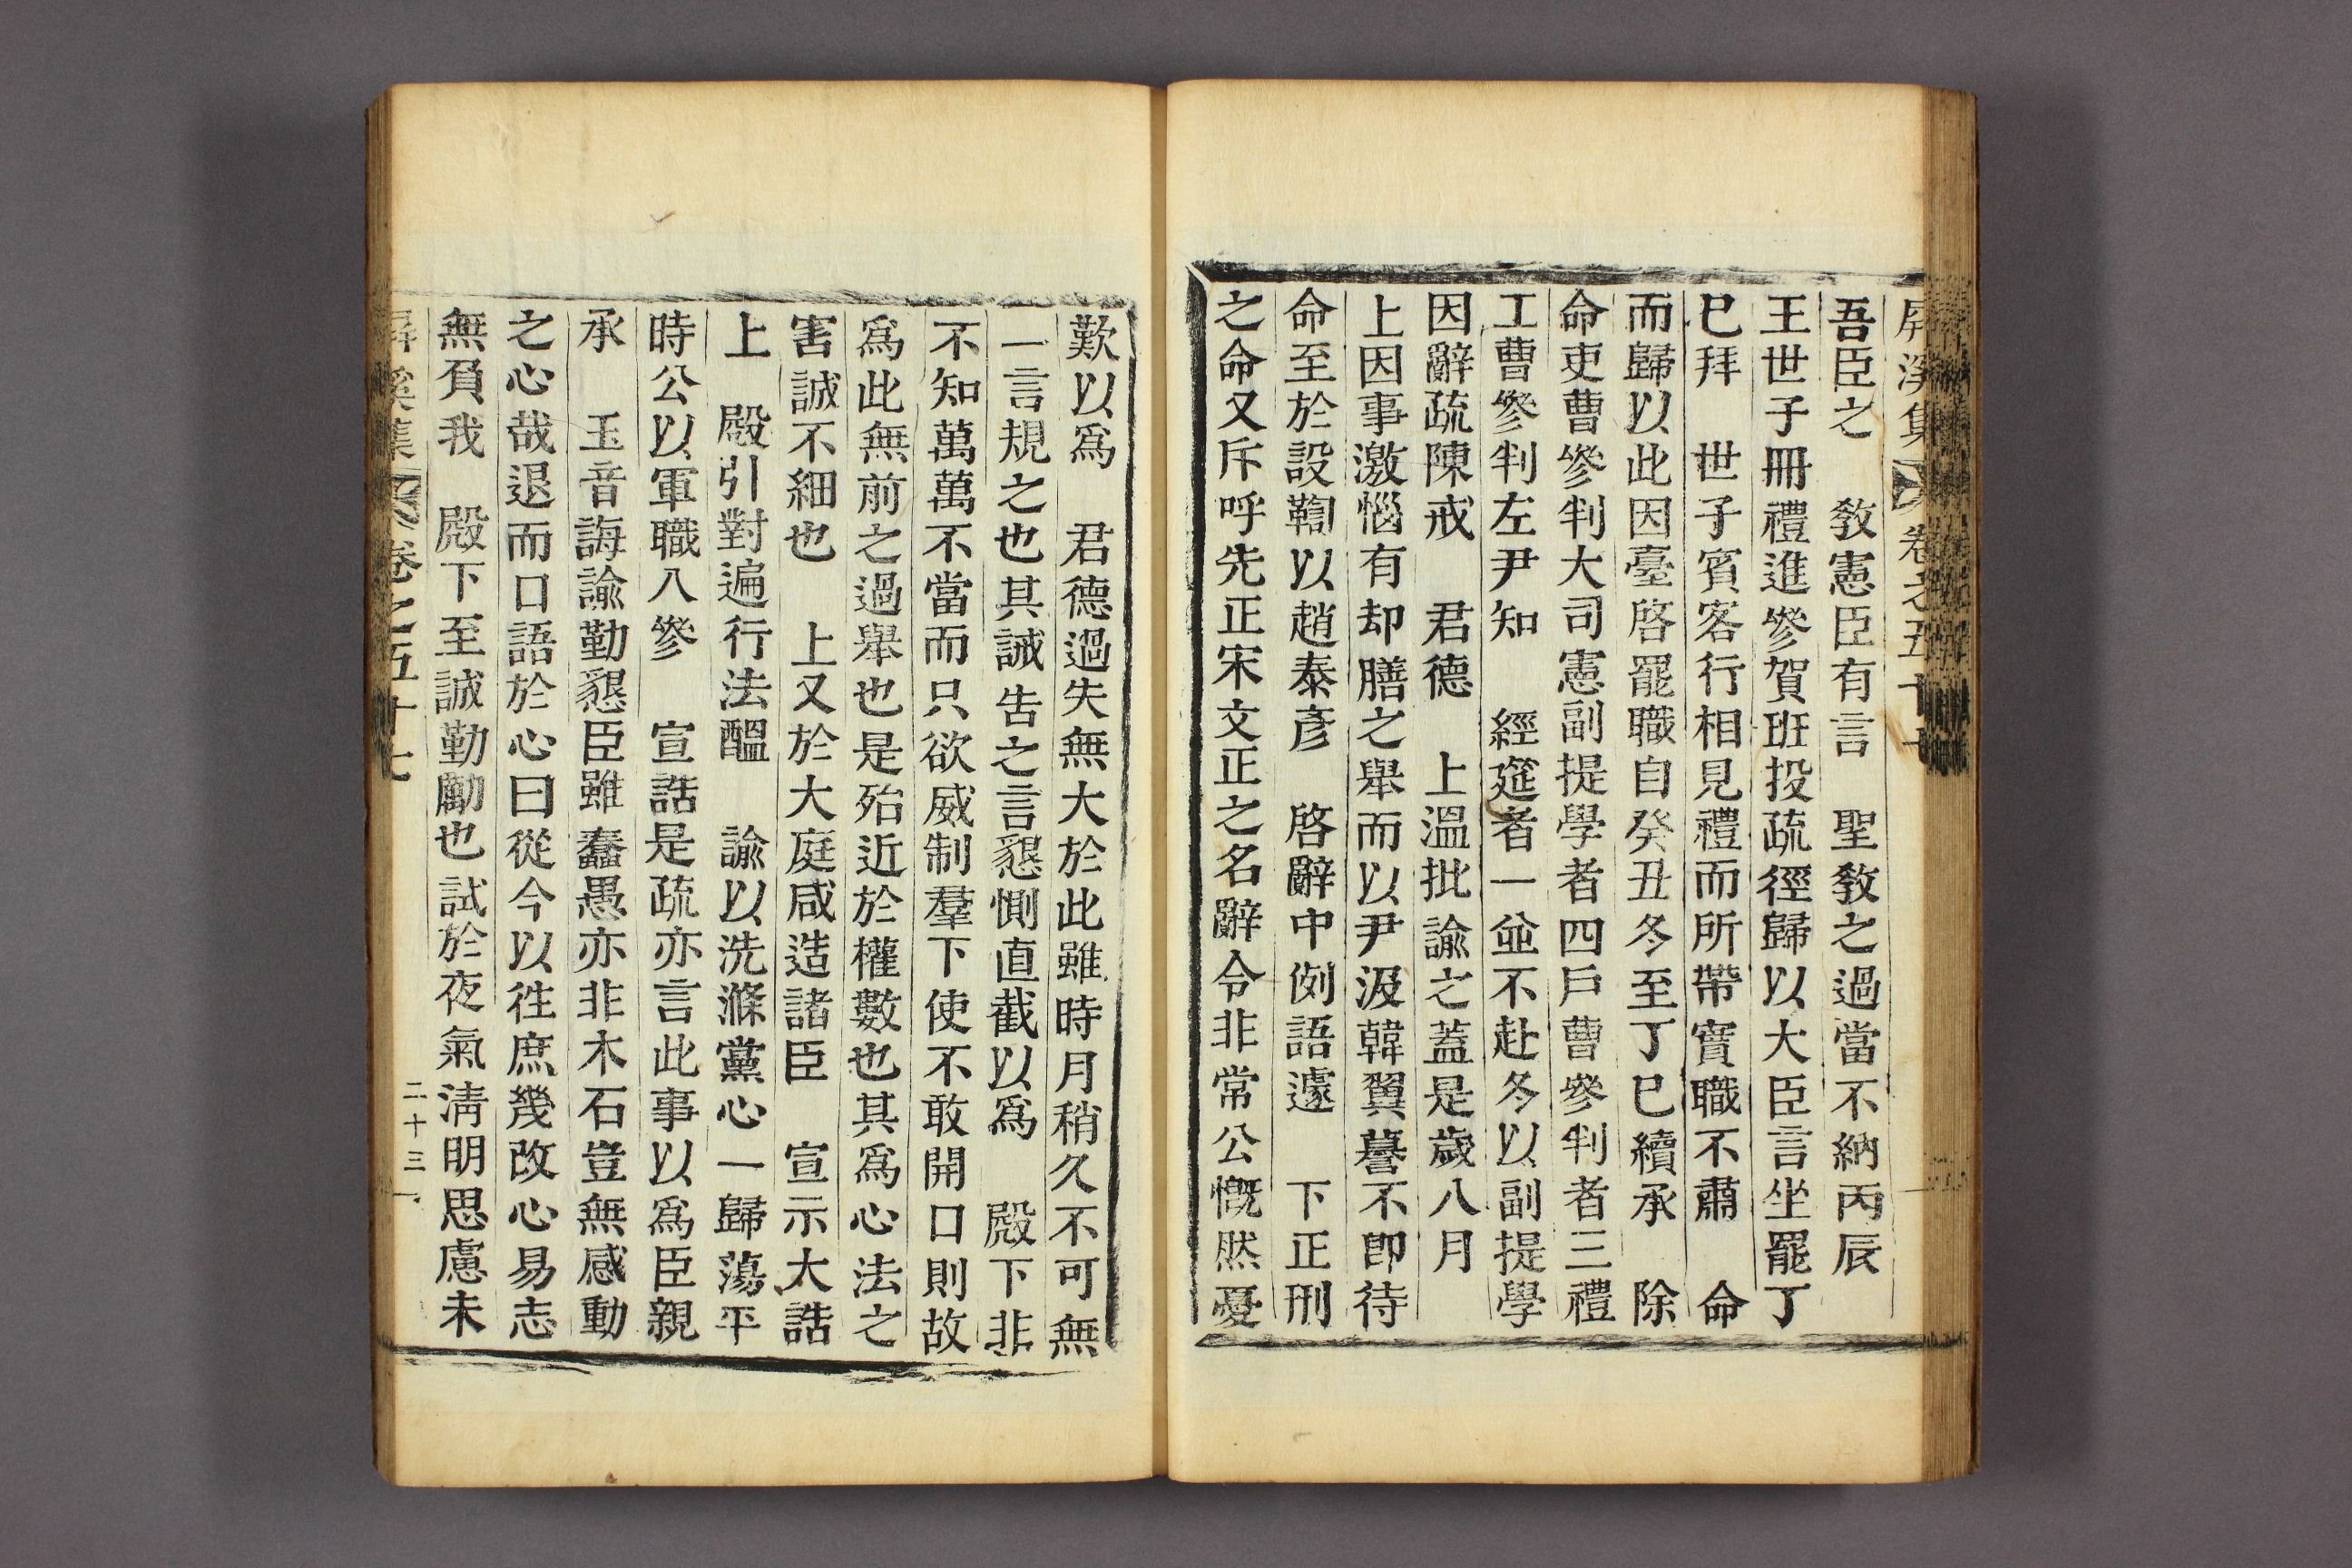 屛溪集 卷之五十七
吾臣之 敎憲臣有言 聖敎之過當不納丙辰
王世子冊禮進參賀班投疏徑歸以大臣言坐罷丁
巳拜 世子賓客行相見禮而所帶實職不肅 命
而歸以此因臺啓罷職自癸丑冬至丁巳續承 除
命吏曹參判大司憲副提學者四戶曹參判者三禮
工曹參判左尹知 經筵者一並不赴冬以副提學
因辭疏陳戒 君德 上溫批諭之蓋是歲八月
上因事激惱有却膳之舉而以尹汲韓翼謩不卽待
命至於設鞫以趙泰彥 啓辭中例語遽 下正刑
之命又斥呼先正宋文正之名辭令非常公慨然憂
歎以爲 君德過失無大於此雖時月稍久不可無
一言規之也其誡告之言懇惻直截以爲 殿下非
不知萬萬不當而只欲威制羣下使不敢開口則故
爲此無前之過舉也是殆近於權數也其爲心法之
害誠不細也 上又於大庭咸造諸臣 宣示大誥
上 殿引對遍行法醞 諭以洗滌黨心一歸蕩平
時公以軍職入參 宣誥是疏亦言此事以爲臣親
承 玉音誨諭勤懇臣雖蠢愚亦非木石豈無感動
之心哉退而口語於心曰從今以徃庶幾改心易志
無負我 殿下至誠勤勵也試於夜氣淸明思慮未
屛溪集 卷之五十七 二十三